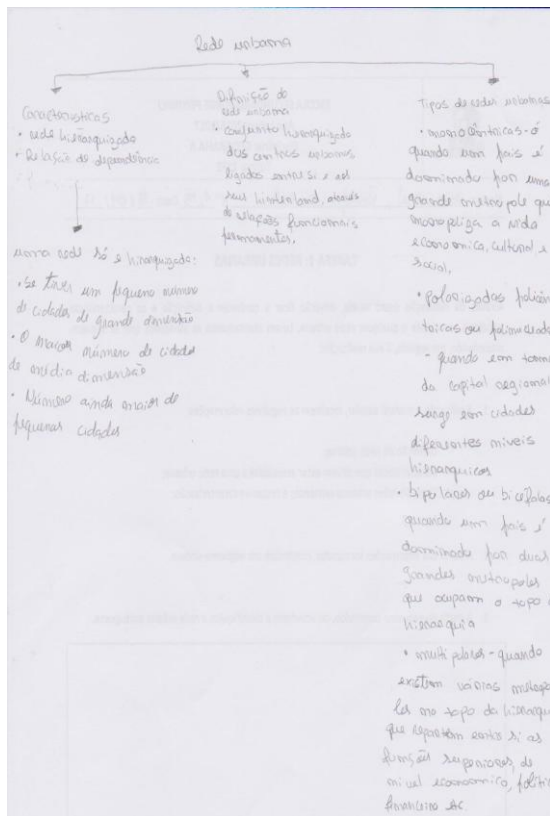 Rede urbana
Características
• rede hierarquizada
• Relação de dependência
uma rede só é hierarquizada:
• Se tiver um pequeno número
de cidades de grande dimensão
• O maior número de cidades
de média dimensão
• Número ainda maior de
pequenas cidades
Definição de
rede urbana
• conjunto hierarquizado
dos centros urbanos
ligados entre si e
seu hinterland, através
de relações funcionais
permanentes.
Tipos de redes urbanas
• monocêntricas - é
quando um país é
dominado por uma
grande metrópole que
monopoliza a vida
economica, cultural e
social,
• polarizadas
ou polinucleada
- quando em torno
da capital regional
surge em cidades
diferentes niveis
hierarquicos
• bipolares ou bicéfalas
quando um país é
dominado por duas
grandes metropoles
que ocupam o topo
hierarquia
• multipolares - quando
existem várias metrópo
les no topo da hierarqu
que repartem entre si as
funções superiores, de
nivel economico, polític
financeiro etc.